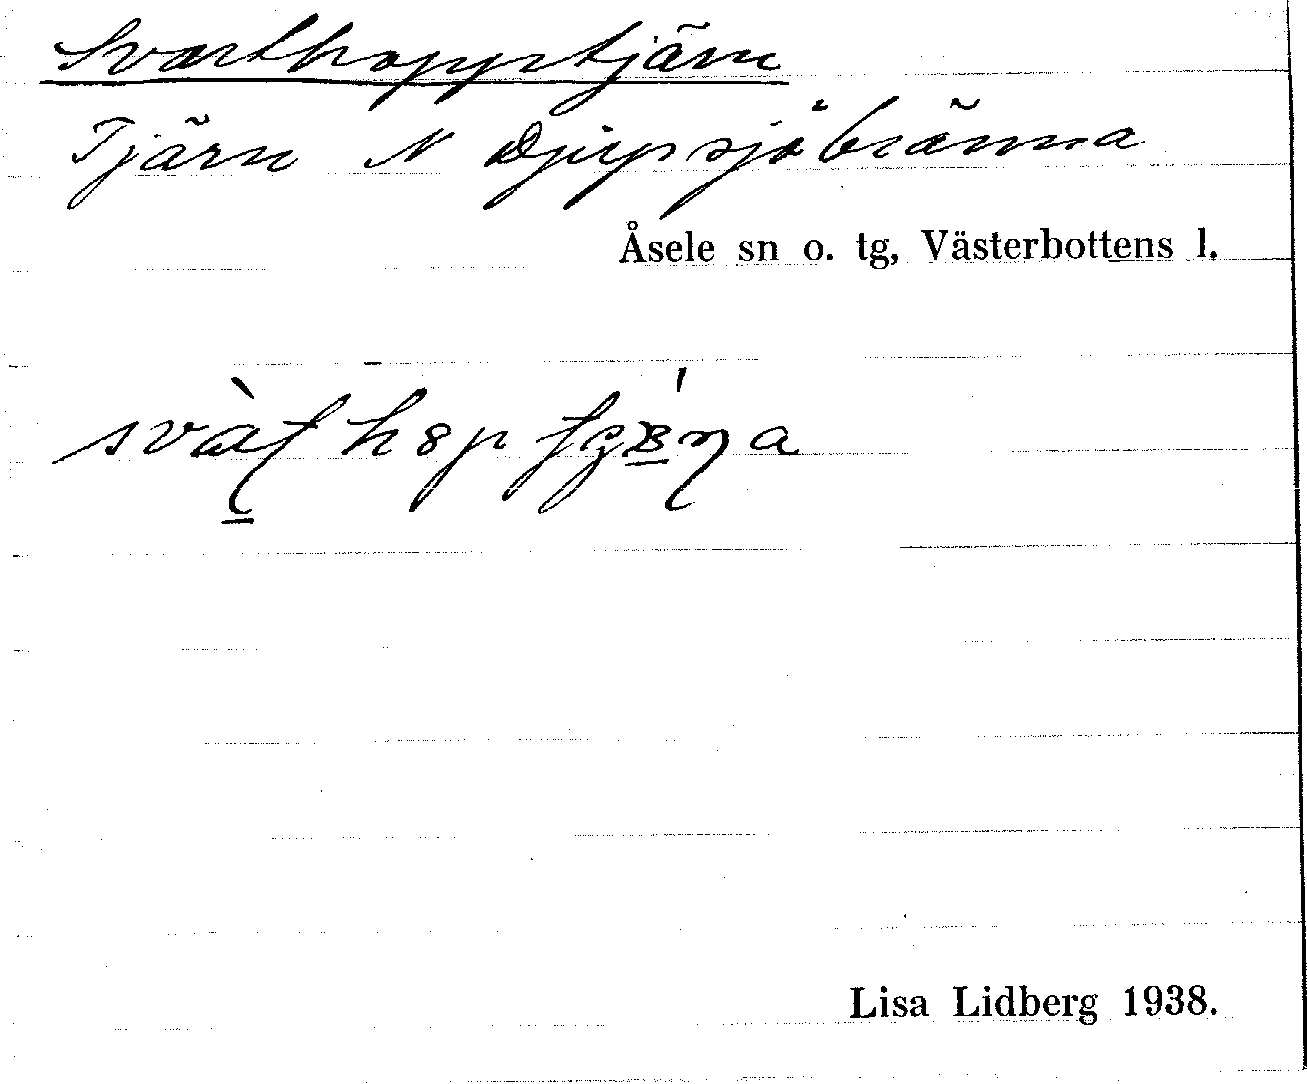 Svarthoppstjärn
Tjärn N Djupsjöbränna
Åsele sn o. tg, Västerbottens l.
Lisa Lidberg 1938.